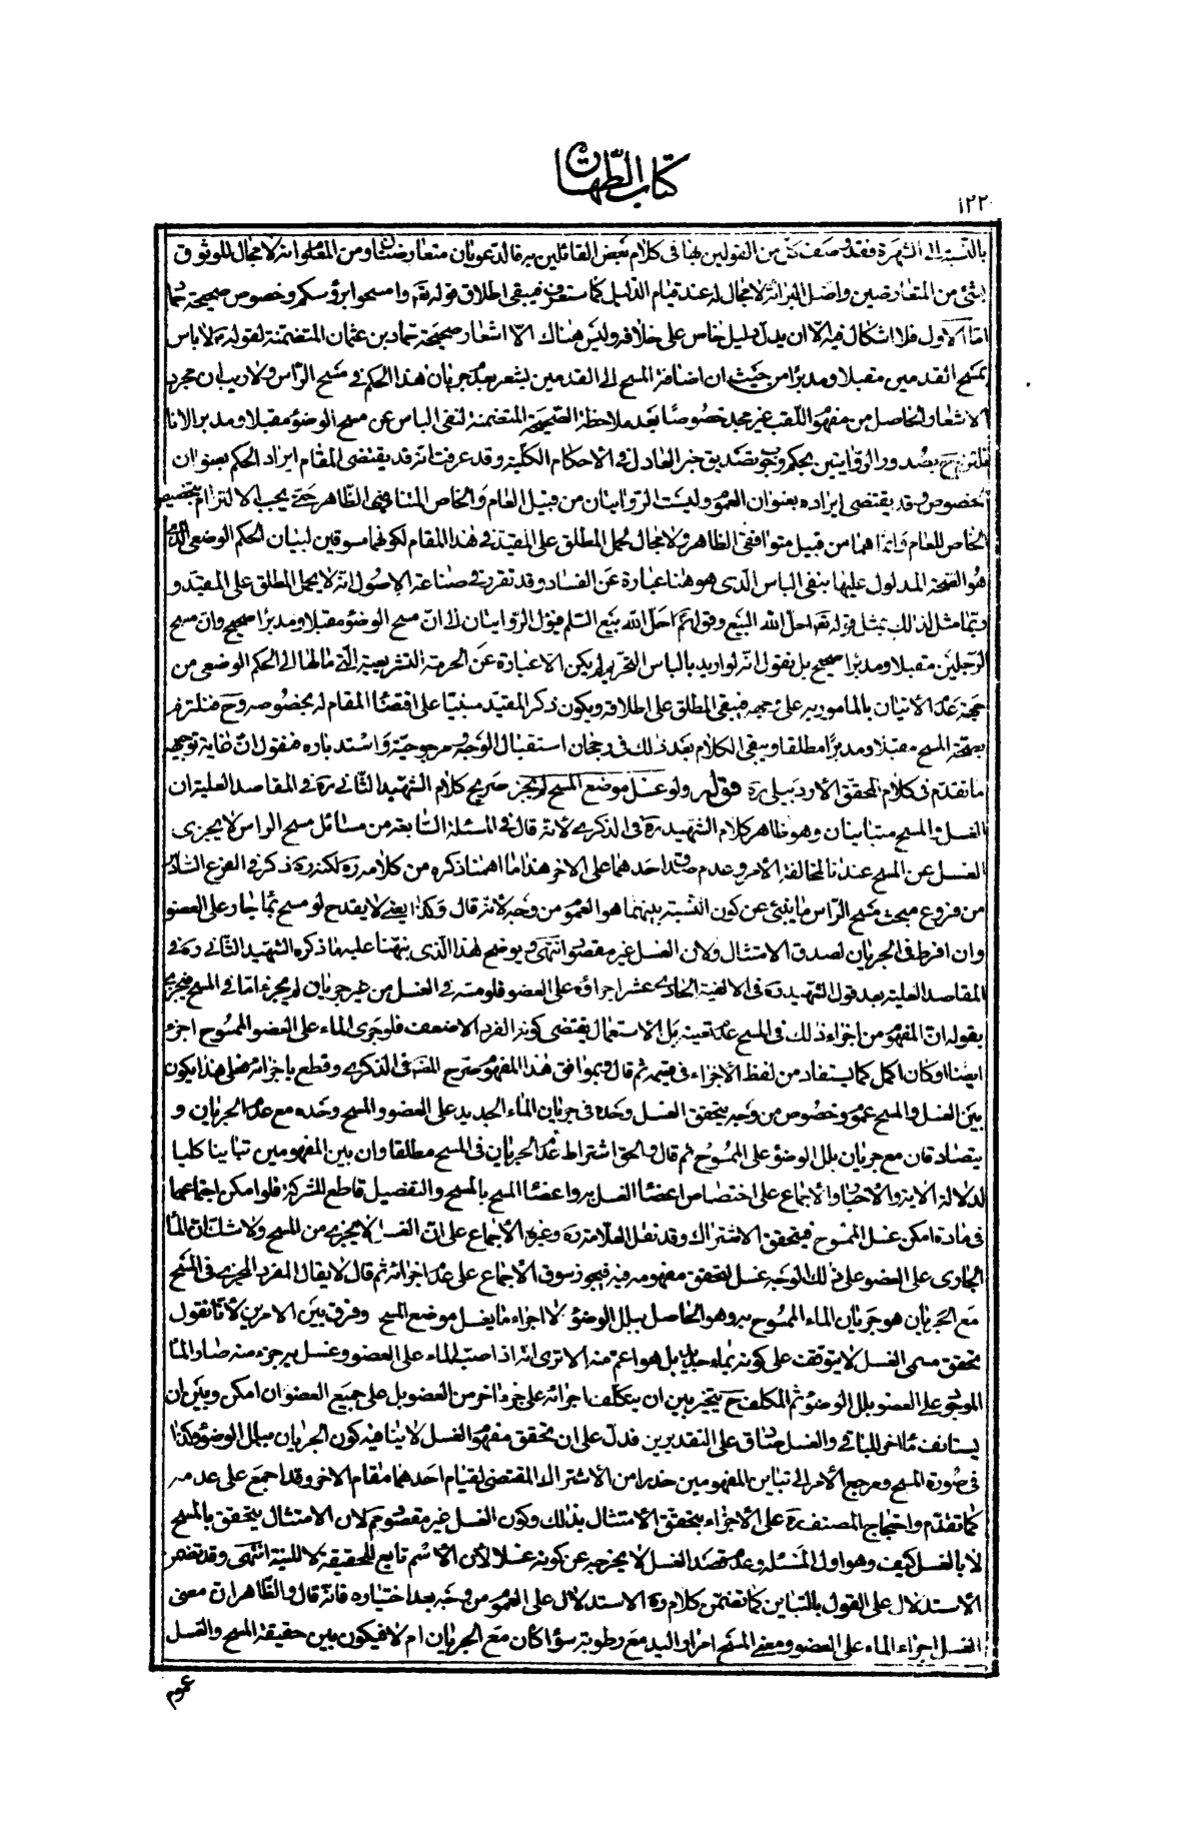 كتاب الطهارة
١٢٢
بالنسبة الى الشهرة فقد وصف كل من القولين بها فى كلام بعض القائلين به فالدعويان متعارضتان ومن المعلوم انه لا مجال للوثوق
بشئ من المتعارضين واصل البرائة لا مجال له عند قيام الدليل كما ستعرف فيبقى اطلاق قوله تعـ وامسحوا برؤسكم وخصوص صحيحة حماد
امّا الاول فلا اشكال فيه الا ان يدل دليل خاص على خلافه وليس هناك الا اشعار صحيحة حماد بن عثمان المتضمنة لقوله ع لا باس
بمسح القدمين مقبلا ومدبرا من حيث ان اضافة المسح الى القدمين يشعر بعدم جريان هذا الحكم فى مسح الراس ولا ريب ان مجرد
الاشعار الحاصل من مفهوم اللقب غير مجد خصوصًا بعد ملاحظة الصحيحة المتضمنة لنفى الباس عن مسح الوضوء مقبلا ومدبرا لانا
نلتزم ح بصدور الروايتين بحكم وجوب تصديق خبر العادل فى الاحكام الكلية وقد عرفت انه قد يقتضى المقام ايراد الحكم بعنوان
الخصوص وقد يقتضى ايراده بعنوان العموم وليست الروايتان من قبيل العام والخاص المتنافيى الظاهر حتى يجب الالتزام بتخصيص
الخاص للعام وانما هما من قبيل متوافقى الظاهر ولا مجال لحمل المطلق على المقيد فى هذا المقام لكونهما مسوقين لبيان الحكم الوضعى الذى
هو الصحة المدلول عليها بنفى الباس الذى هو هنا عبارة عن الفساد وقد تقرر فى صناعة الاصول انه لا يحمل المطلق على المقيد و
ربما مثل لذلك بمثل قوله تعـ احل الله البيع وقوله ع احل الله بيع السلم فيؤل الروايتان الى ان مسح الوضوء مقبلا ومدبرا صحيح وان مسح
الرجلين مقبلا ومدبرا صحيح بل نقول انه لو اريد بالباس التحريم لم يكن الا عبارة عن الحرمة التشريعية التى مالها الى الحكم الوضعى من
جهة عدم الاتيان بالمامور به على وجهه فيبقى المطلق على اطلاقه ويكون ذكر المقيد مبنيا على اقتضاء المقام له بخصوصه وح فنلتزم
بصحة المسح مقبلا ومدبرا مطلقا ويبقى الكلام بعد ذلك فى رجحان استقبال الوجه ومرجوحية واستدباره فنقول ان غاية توجيهه
ما تقدم فى كلام المحقق الاردبيلى ره قوله ولو غسل موضع المسح لم يجز صريح كلام الشهيد الثانى ره فى المقاصد العلية ان
الغسل والمسح متباينان وهو ظاهر كلام الشهيد ره فى الذكرى لانه قال فى المسئلة السابعة من مسائل مسح الراس لا يجزى
الغسل عن المسح عندنا لمخالفة الامر وعدم صدق احدهما على الاخر هذا ما اهمنا ذكره من كلامه ره لكنه ره ذكر فى الفرع السادس
من فروع مبحث مسح الراس ما ينبئ عن كون النسبة بينهما هو العموم من وجه لانه قال وكذا يعنى لا يقدح لو مسح بماء جار على العضو
وان افرط فى الجريان لصدق الامتثال ولان الغسل غير مقصود انتهى ويوضح هذا الذى نبهنا عليه ما ذكره الشهيد الثانى ره فى
المقاصد العلية بعد قول الشهيد ره فى الالفية الحادى عشر اجراؤه على العضو فلو مسه فى الغسل من غير جريان لم يجز اما فى المسح فيجزى
بقوله ان المفهوم من اجزاء ذلك فى المسح عدم تعينه بل الاستعمال يقتضى كونه الفرد الاضعف فلو جرى الماء على العضو الممسوح اجزء
ايضا او كان اكمل كما يستفاد من لفظ الاجزاء فى قسيمه ثم قال وبما وافق هذا المفهوم صرح المصنف فى الذكرى وقطع باجزائه فعلى هذا يكون
بين الغسل والمسح عموم وخصوص من وجه يتحقق الغسل وحده فى جريان الماء الجديد على العضو والمسح وحده مع عدم الجريان و
يتصادقان مع جريان بلل الوضوء على الممسوح ثم قال والحق اشتراط عدم الجريان فى المسح مطلقا وان بين المفهومين تباينا كليا
لدلالة الاية والاخبار والاجماع على اختصاص اعضاء الغسل به واعضاء المسح بالمسح والتفصيل قاطع للشركة فلو امكن اجتماعهما
فى مادة امكن غسل الممسوح فيتحقق الاشتراك وقد نقل العلامة ره وغيره الاجماع على ان الغسل لا يجزى من المسح ولا شك ان الماء
الجارى على العضو على ذلك الوجه غسل لتحقق مفهومه فيه فيجوز سوق الاجماع على عدم اجزائه ثم قال لا يقال الفرد المجزى فى المسح
مع الجريان هو جريان الماء الممسوح به وهو الحاصل ببلل الوضوء لا اجراء ما يغسل موضع المسح وفرق بين الامرين لانا نقول
تحقق مسمى الغسل لا يتوقف على كونه بماء جديد بل هو اعم منه الا ترى انه اذا صب الماء على العضو وغسل به جزء منه صار الماء
الموجود على العضو بلل الوضوء ثم المكلف ح يتخير بين ان يتكلف اجرائه على جزء اخر من العضو بل على جميع العضو ان امكن وبين ان
يستانف ماء اخر للباقى والغسل صادق على التقديرين فدل على ان تحقق مفهوم الغسل لا ينافيه كون الجريان ببلل الوضوء وهكذا
فى صورة المسح ومرجع الامر الى تباين المفهومين حذرا من الاشتراك المقتضى لقيام احدهما مقام الاخر وقد اجمع على عدمه
كما تقدم واحتجاج المصنف ره على الاجزاء بتحقق الامتثال بذلك وكون الغسل غير مقصود ثم لان الامتثال يتحقق بالمسح
لا بالغسل كيف وهو اول المسئلة وعدم قصد الغسل لا يخرجه عن كونه غسلا لان الاسم تابع للحقيقة لا للنية انتهى وقد تضمن
الاستدلال على القول بالتباين كما تضمن كلام ره الاستدلال على العموم من وجه بعد اختياره فانه قال والظاهر ان معنى
الغسل اجراء الماء على العضو ومعنى المسح امرار اليد مع رطوبة سواء كان مع الجريان ام لا فيكون بين حقيقة المسح والغسل
عموم